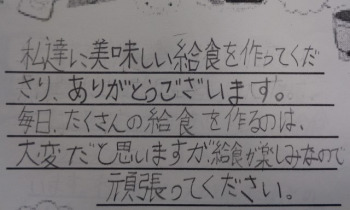 私達に美味しい給食を作ってくだ
さり、ありがとうございます。
毎日、たくさんの給食を作るのは、
大変だと思いますが、給食が楽しみなので
頑張ってください。